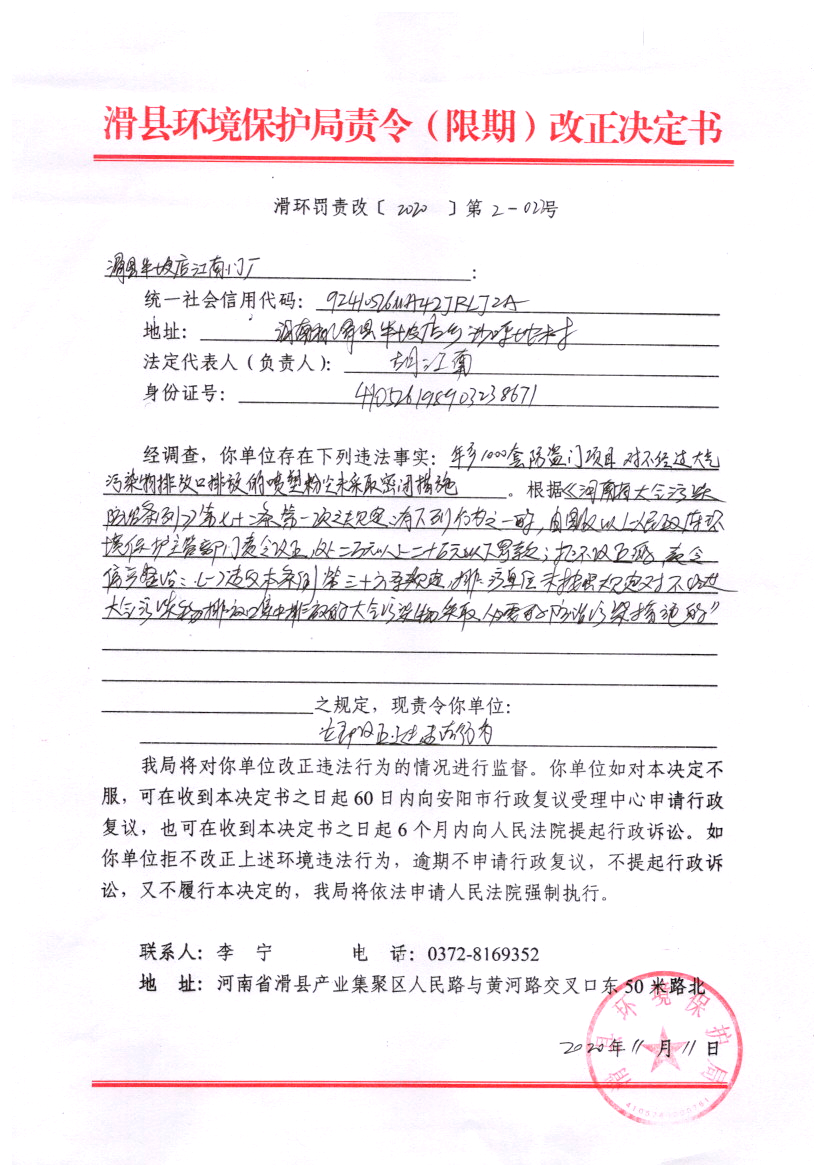 滑县环境保护局责令（限期）改正决定书
滑环罚责改〔 2020 〕第 2-02号
滑县半坡店江南门厂：
统一社会信用代码：92410526MA42JRLJ2A
地址：河南省滑县半坡店乡
法定代表人（负责人）：胡江南
身份证号：410526198903238671
经调查，你单位存在下列违法事实：年产1000套防盗门项目 对不经过大气
污染物排放口排放的喷塑粉尘未采取密闭措施。根据《河南省大气污染
防治条例》第七十二条第一款之规定：有下列行为之一的，由县级以上人民政府环
境保护主管部门责令改正，处二万元以上二十万元以下罚款；拒不改正的，责令
停产整治：(一)违反本条例第三十六条规定，排污单位未按照规定对不经过
大气污染物排放口集中排放的大气污染物采取必要的防治污染措施的”
之规定，现责令你单位：
立即改正上述违法行为
我局将对你单位改正违法行为的情况进行监督。你单位如对本决定不
服，可在收到本决定书之日起 60 日内向安阳市行政复议受理中心申请行政
复议，也可在收到本决定书之日起 6 个月内向人民法院提起行政诉讼。如
你单位拒不改正上述环境违法行为，逾期不申请行政复议，不提起行政诉
讼，又不履行本决定的，我局将依法申请人民法院强制执行。
联系人：李 宁 电 话：0372-8169352
地 址：河南省滑县产业集聚区人民路与黄河路交叉口东 50 米路北
2020年 11 月 11 日
滑县环境保护局